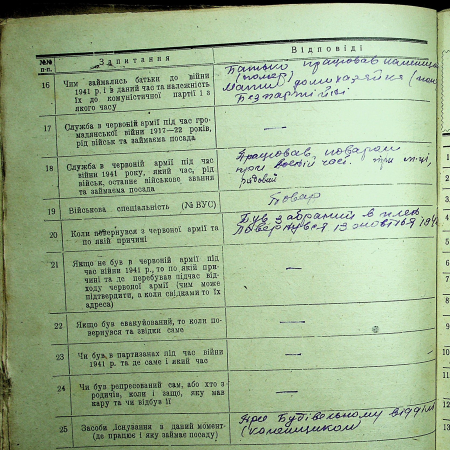 №№ п-п. Запитання Відповіді
16 Чим займались батьки до війни
1941 р. і в даний час та належність
їх до комуністичної партії і з
якого часу
Батько працював каменщик
(помер)
Мати домохазяйка (пом
Безпартійні
17 Служба в червоній армії під час гро-
мадянської війни 1917—22 років,
рід військ та займаєма посада
—
18 Служба в червоній армії під час
війни 1941 року, який час, рід
військ, останнє військове звання
та займаєма посада
Працював поваром
час. три м-ці,
рядовий
19 Військова спеціальність (№ ВУС)
Повар
20 Коли повернувся з червоної армії та
по якій причині
Був забраний в плен
Повернувся 13 октября 194
21 Якщо не був в червоній армії під
час війни 1941 р., то по якій при-
чині та де перебував підчас від-
ходу червоної армії (чим може
підтвердити, а коли свідками то їх
адреса)
—
22 Якщо був евакуйований, то коли по-
вернувся та звідки саме
—
23 Чи був в партизанах під час війни
1941 р. та де саме і який час
—
24 Чи був репресований сам, або хто з
родичів, коли і защо, яку мав
кару та чи відбув її
—
25 Засоби існування в даний момент
(де працює і яку займає посаду)
При Будівельному відділі
(каменщиком)